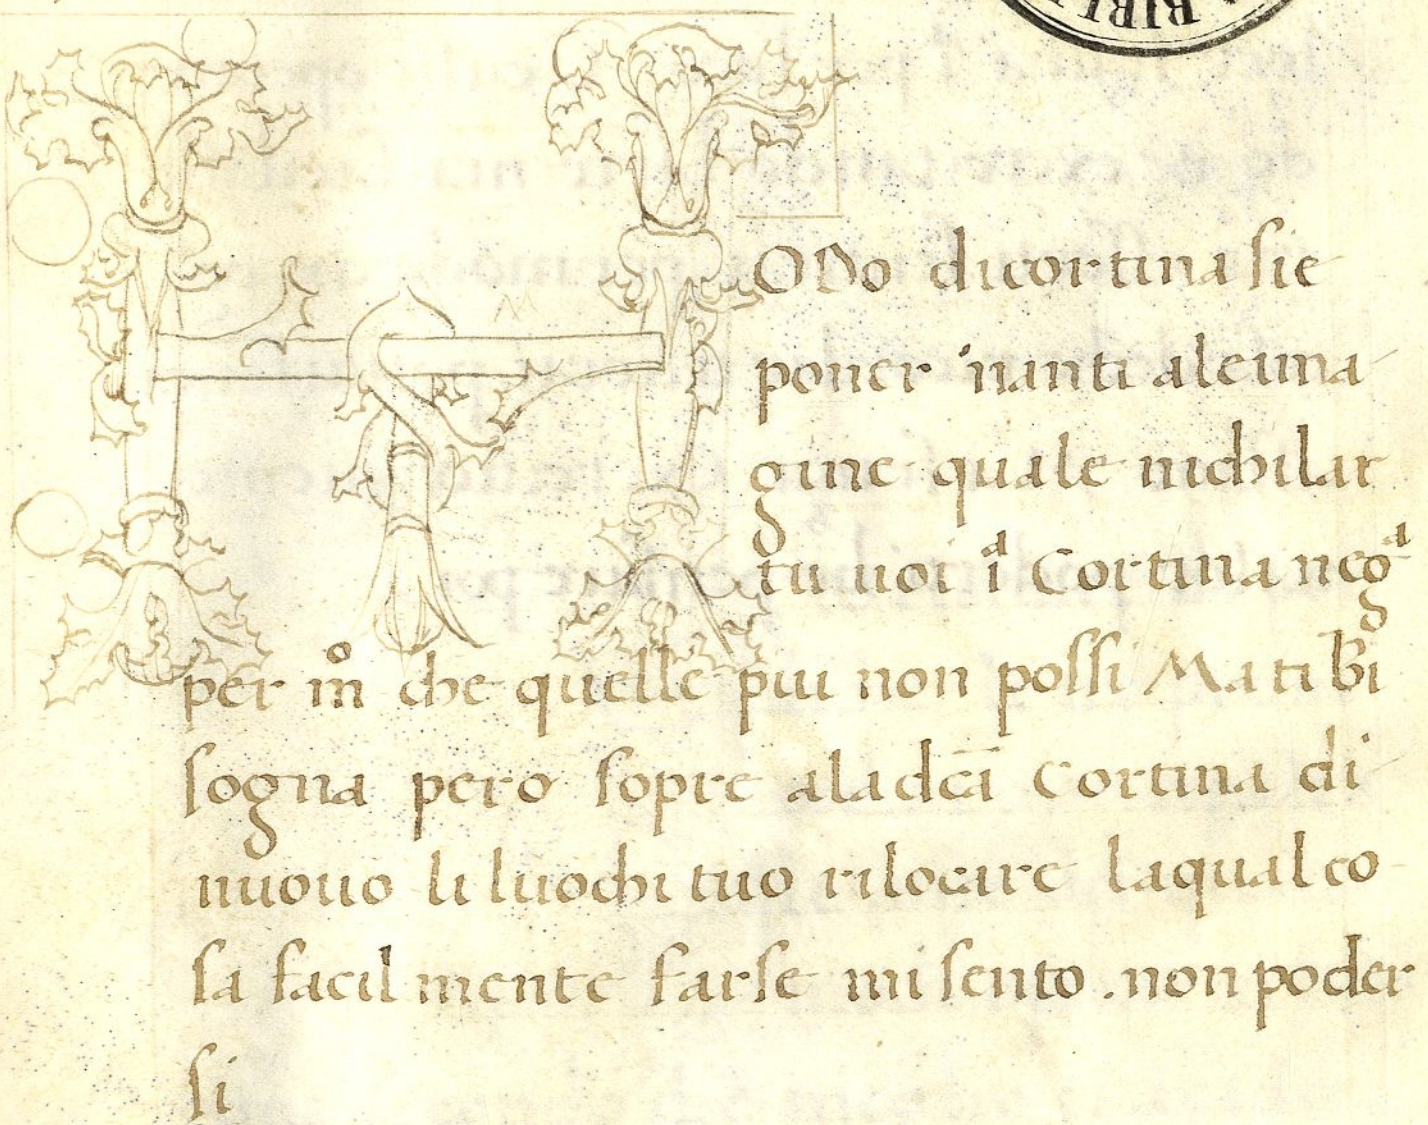 BIBLI
M
ODo di cortina sie
poner inanti ale ima
gine quale nichilar
tu uoi iᵃ Cortina negᵃ
per m̊ che quelle piu non possi Ma ti bi
sogna pero sopre a la dc̄a Cortina di
nuouo li luochi tuo rilocare la qual co
sa facilmente farse mi sento . non poder
si